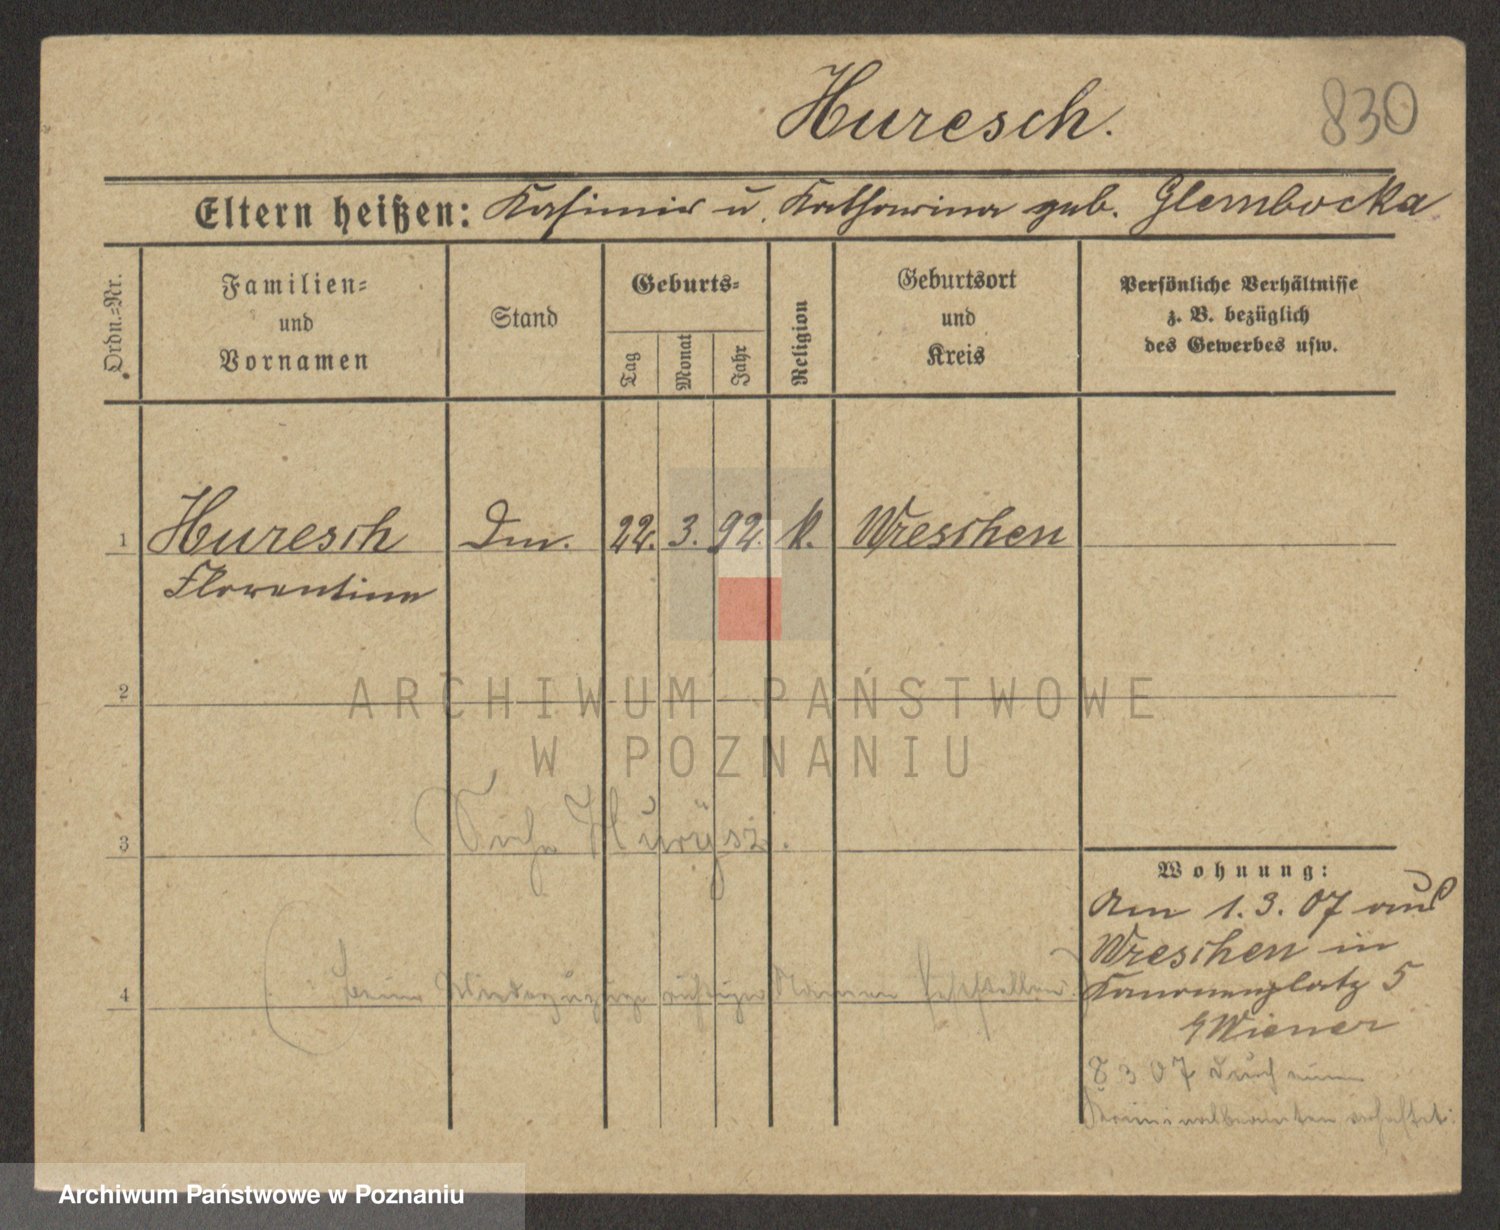 Huresch.
830
Eltern heißen: Kasimir u. Katharina geb. Glembocka
Ordn.-Nr.
Familien-
und
Vornamen
Stand
Geburts-
Tag
Monat
Jahr
Religion
Geburtsort
und
Kreis
Persönliche Verhältnisse
z. B. bezüglich
des Gewerbes usw.
1 Huresch Dm. 22. 3. 92. k. Wreschen
Florentine
2
ARCHIWUM PAŃSTWOWE
W POZNANIU
Siehe Hurÿsz.
3
Wohnung:
Am 1.3.07 aus
Wreschen in
Kanonenplatz 5
Wiener
4
beim Wiederzuzuge richtigen Namen feststellen
8 3 07 durch einen
Kriminalbeamten verhaftet.
Archiwum Państwowe w Poznaniu